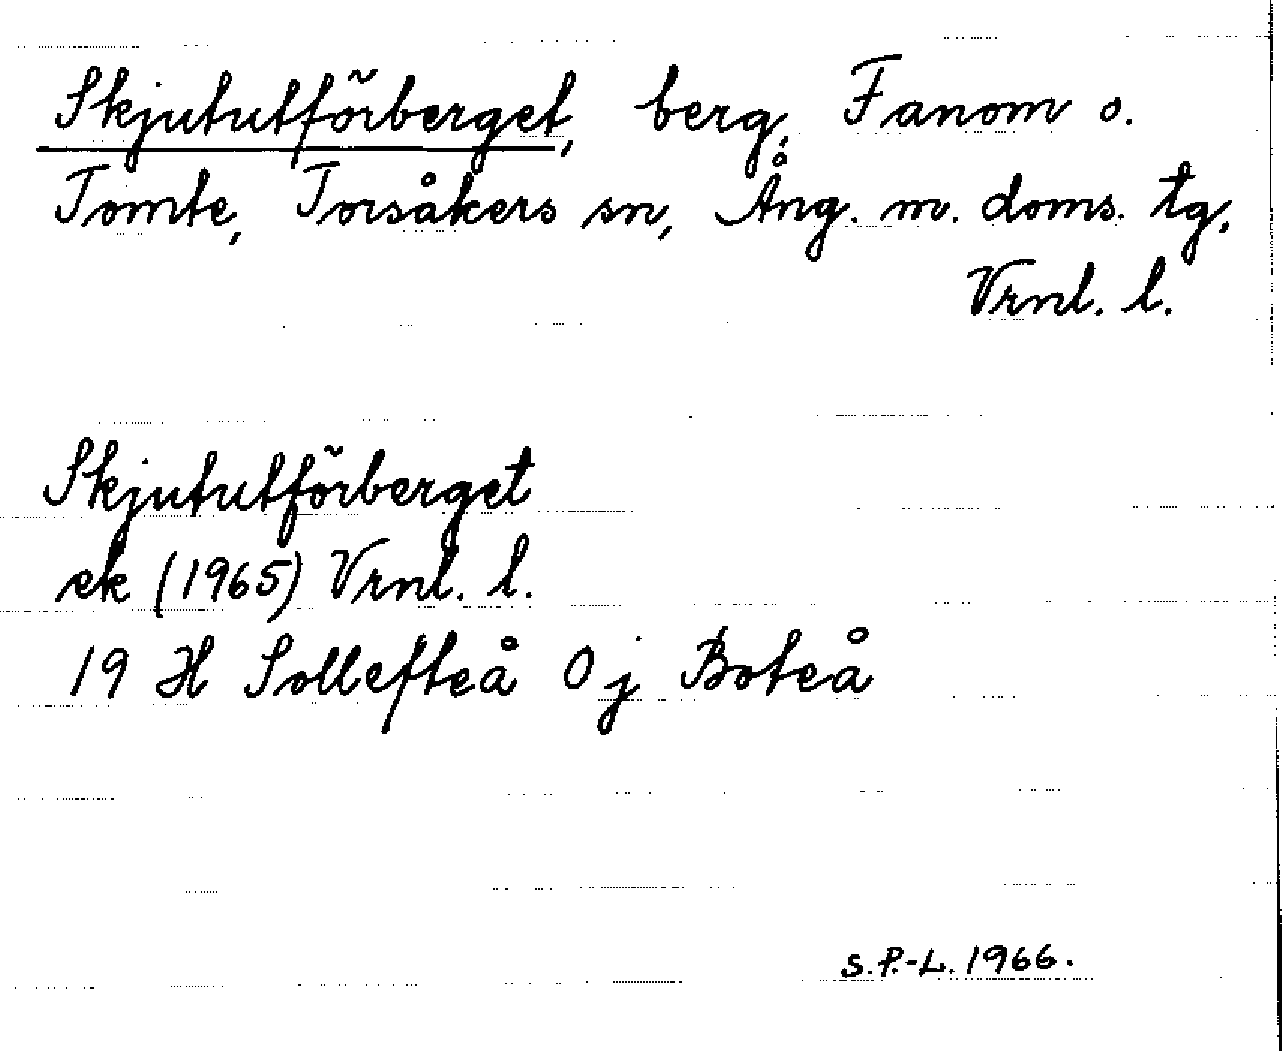 Skjututförberget, berg, Fanom o.
Tomte, Torsåkers sn, Ång. m. doms. tg.
Vrnl. l.
Skjututförberget
ek (1965) Vrnl. l.
19 H Sollefteå 0 j Boteå
S.P.-L. 1966.